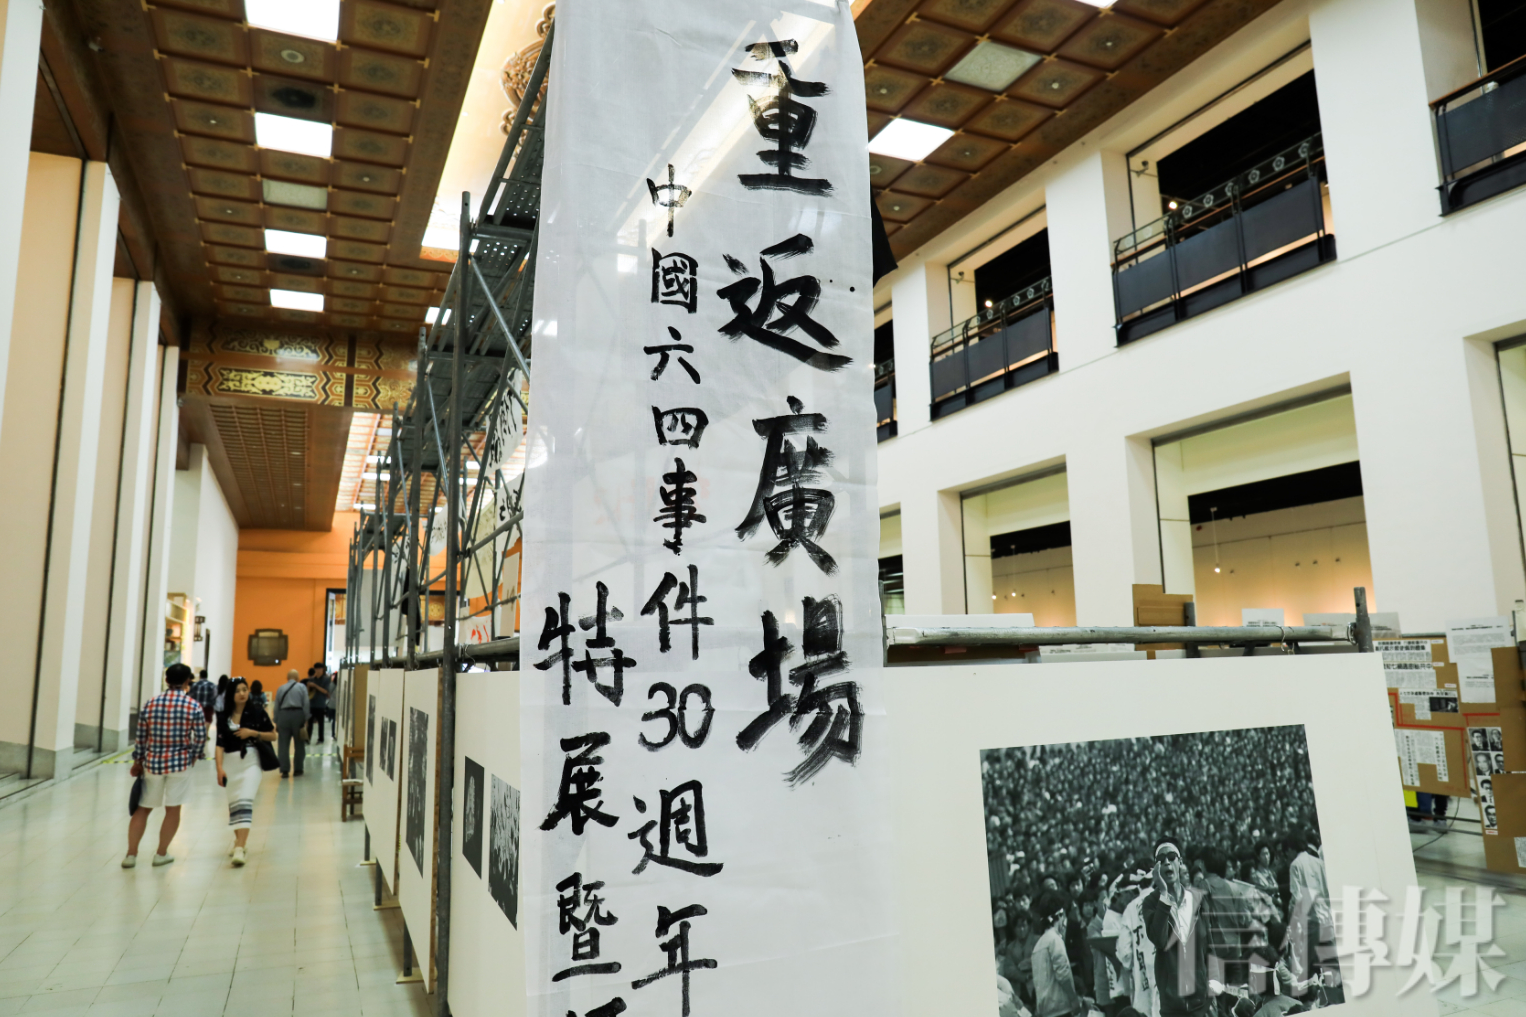 重返廣場
中國六四事件30週年
特展暨
信傳媒